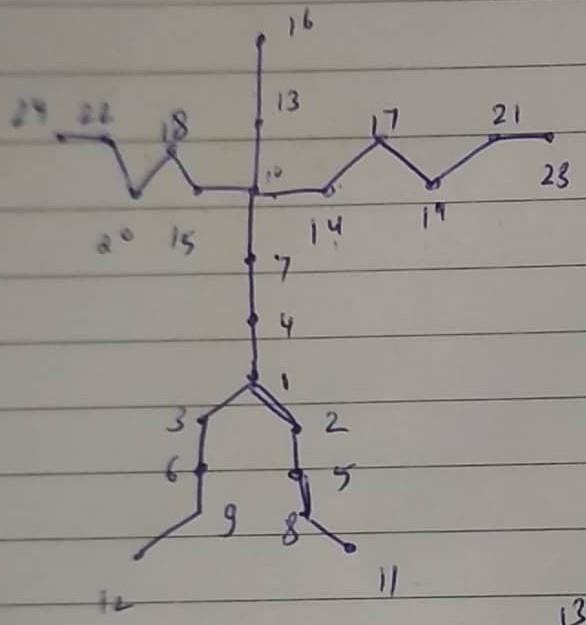 16
13
24 22 18 17 21
10
23
20 15 14 19
7
4
1
3 2
6 5
9 8
11
12
13